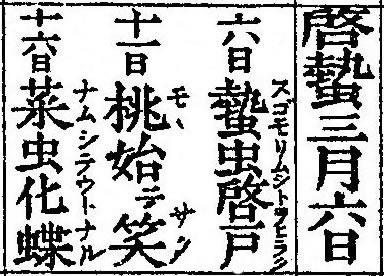 啓蟄三月六日
スゴモリムシトヲヒラク
六日蟄虫啓戸
モヽ サク
十一日桃始テ笑
ナムシテウトナル
十六日菜虫化蝶